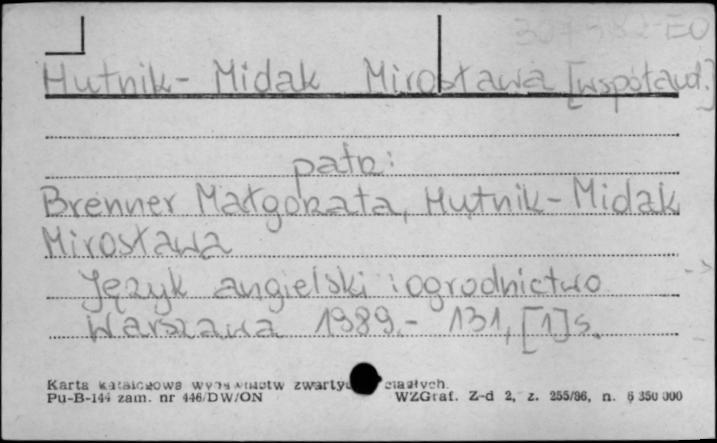 Hutnik-Midak Mirosława [współaut.]
patrz:
Brenner Małgorzata, Hutnik-Midak
Mirosława
Język angielski i ogrodnictwo
Warszawa 1989.- 131, [1] s.
Karta katalogowa wydawnictw zwartych ciągłych.
Pu-B-144 zam. nr 446/DW/ON WZGraf. Z-d 2, z. 255/86, n. 6 350 000